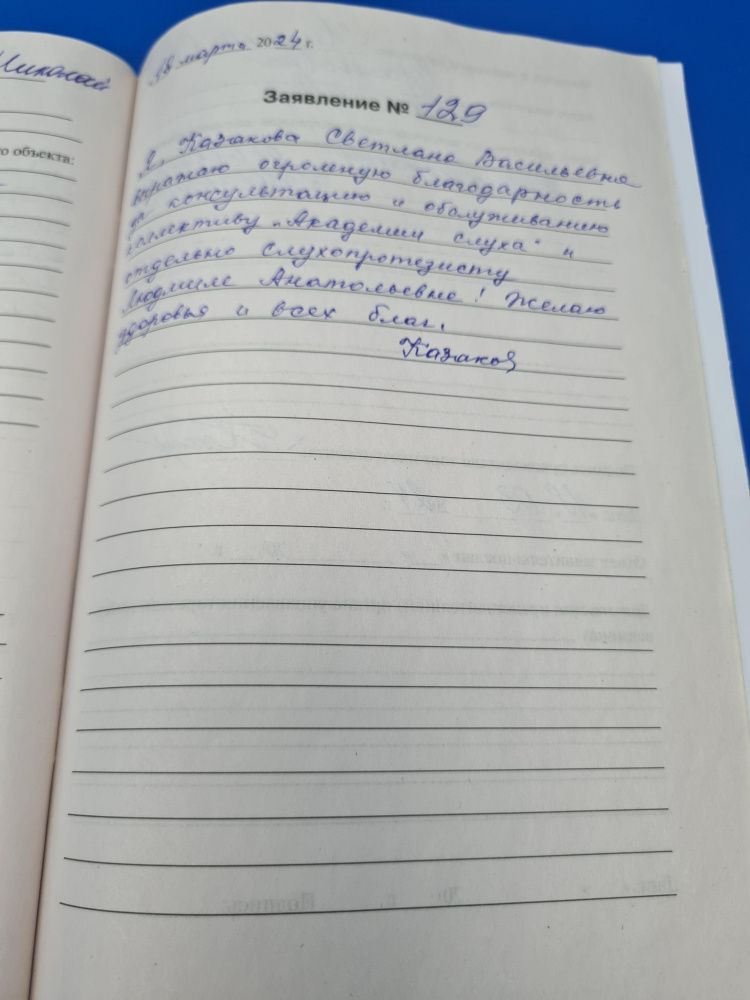 Николай
го объекта:
18 марта 2024 г.
Заявление № 129
Я, Казакова Светлана Васильевна
выражаю огромную благодарность
за консультацию и обслуживанию
коллективу „Академии слуха" и
отдельно слухопротезисту
Людмиле Анатольевне! Желаю
здоровья и всех благ.
Казаков